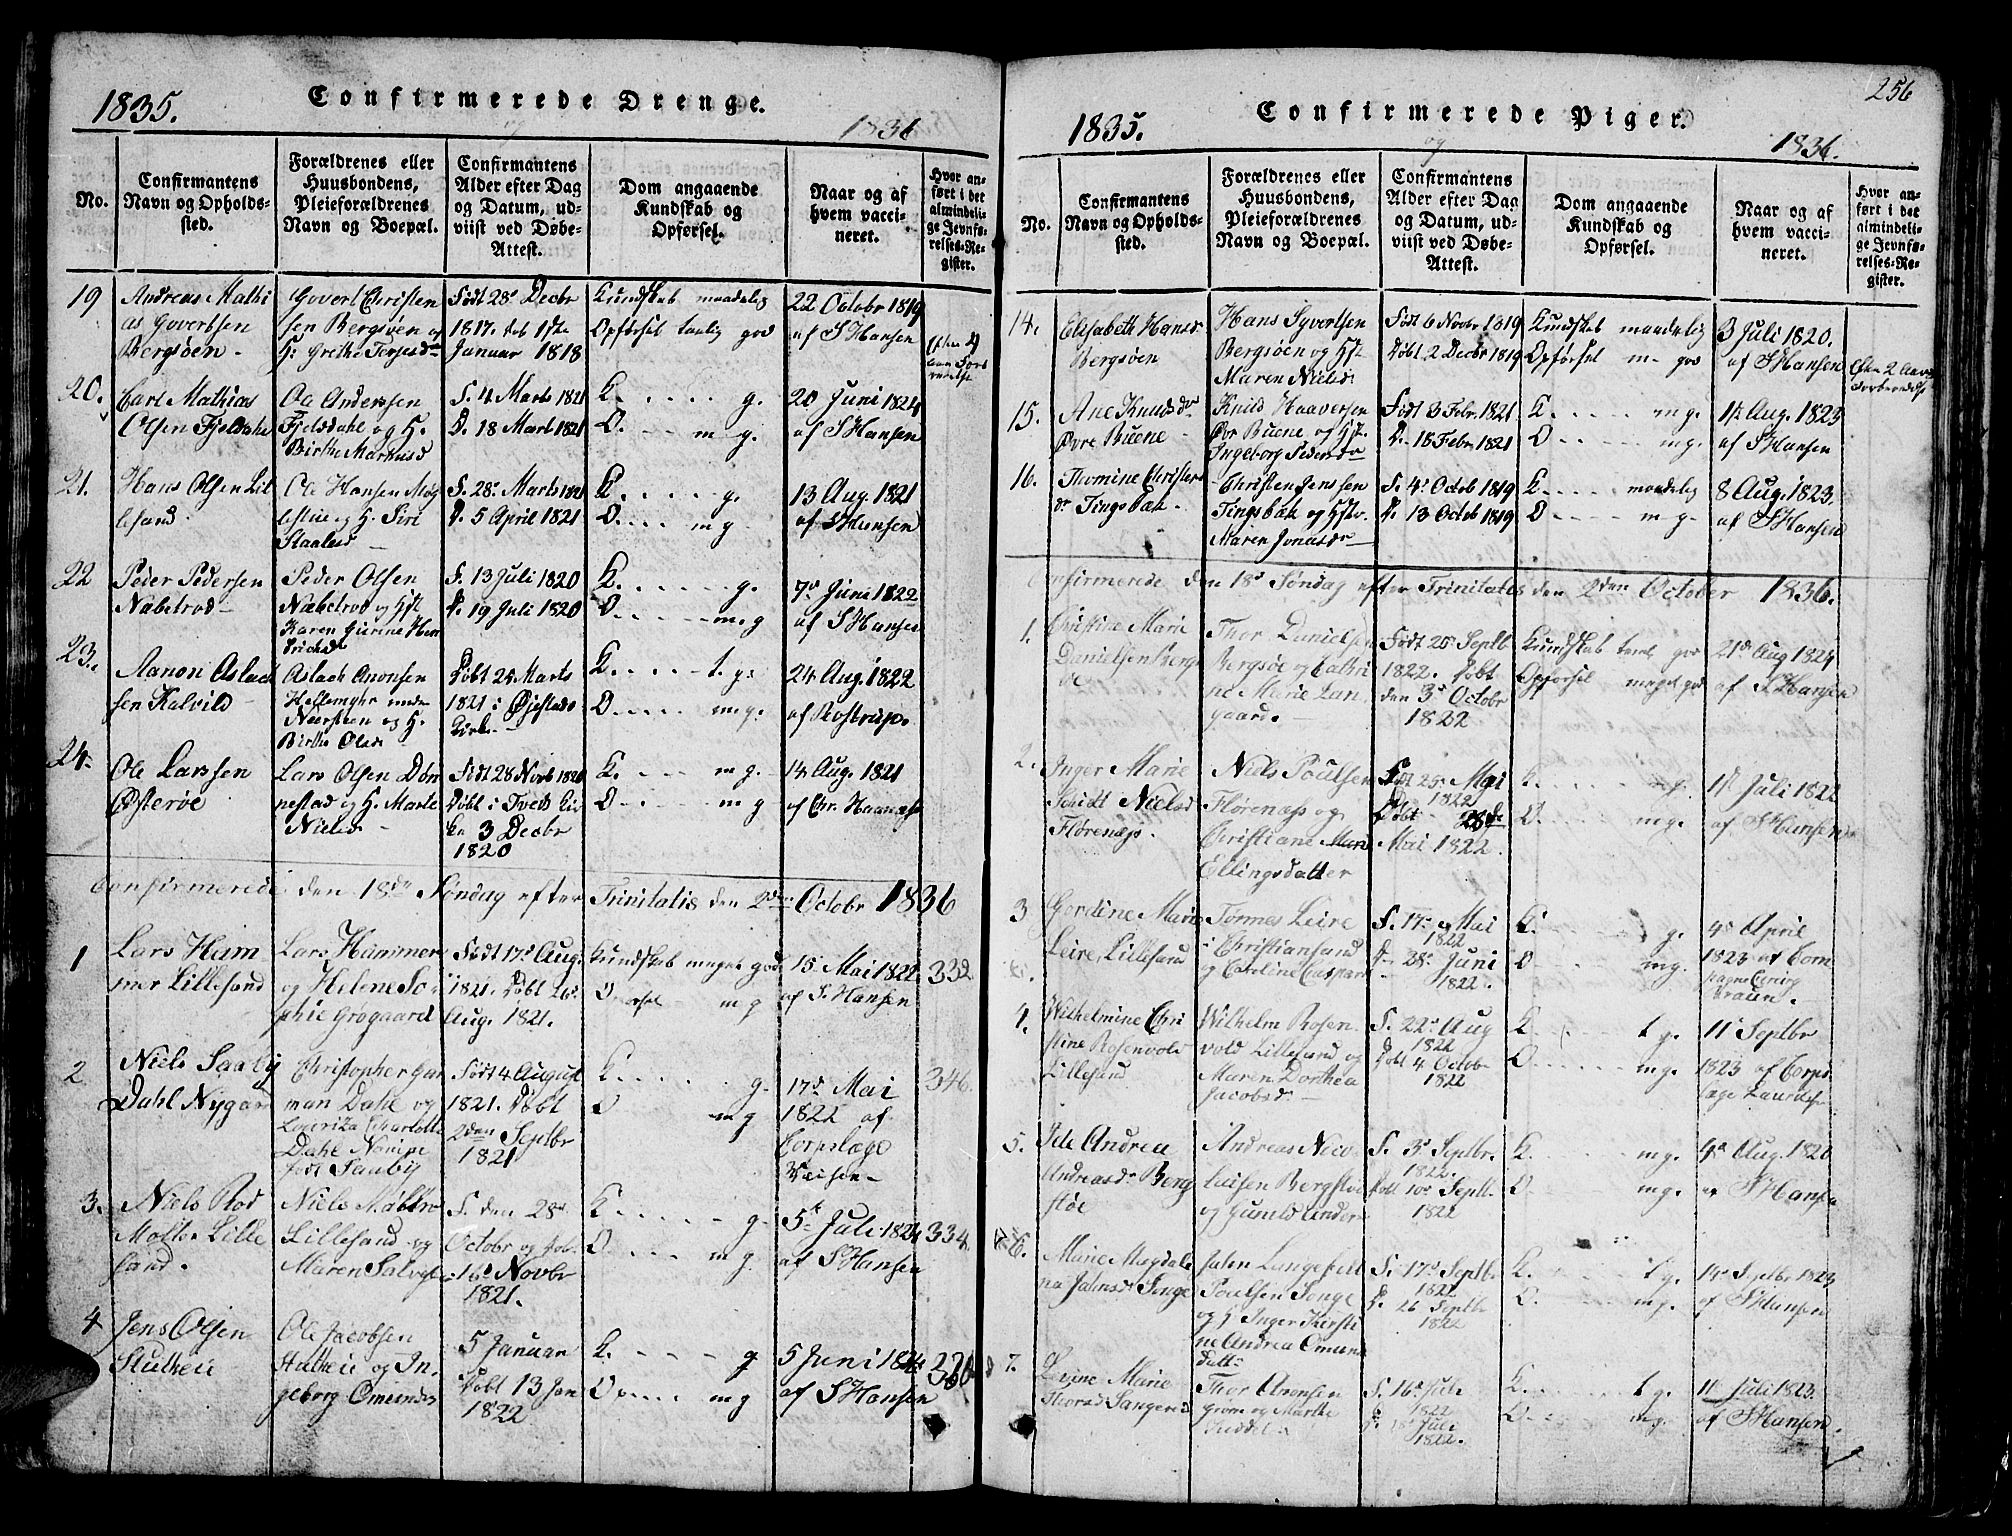 1835.
Confirmerede Drenge.
og
1836
No.
Confirmantens
Navn og Opholds-
sted.
Forældrenes eller
Huusbondens,
Pleieforældrenes
Navn og Boepæl.
Confirmantens
Alder efter Dag
og Datum, ud-
viist ved Døbe-
Attest.
Dom angaaende
Kundskab og
Opførsel.
Naar og af
hvem vacci-
neret.
Hvor an-
ført i det
almindeli-
ge Jevnfø-
relses-Re-
gister.
19
Andreas Mathi
as Govertsen
Bergsøen
Govert Christen
sen Bergsøen og
H. Grethe Terjesdr
Født 28de Decbr
1817. døb 1ste
Januar 1818
Kundskab maadelig
Opførsel taalig god
22 Octobr 1819
af S Hansen
20.
Carl Mathias
Olsen Fjeldahl
Anderssen
Fjeldahl og H.
Birthe Markusd
F. 4 Marts 1821
D. 18 Marts 1821
K. . . . . . g.
O. . . . . m g.
20 Juni 1824
af S Hansen
21.
Hans Olsen Lil
lesand
Ole Hansen Møg
lestue og H. Siri
Staalesd
F. 28de Marts 1821
D. 5 April 1821
K. . . . . . g.
O. . . . . m g.
13 Aug. 1821
af S Hansen
22
Peder Pedersen
Næbstrod
Peder Olsen
Næbetrod og Hst
Karen Gurine Hen
richsd
F. 13 Juli 1820
D. 19 Juli 1820
K. . . . . . g.
O. . . . . m.g
7de Juni 1822
af S Hansen
23.
Aanon Aslach
sen Kalvild
Aslach Anonsen
og H.
Birthe Olsd
Døbt 25 Marts
1821 i Øjestads
Kirke
K. . . . . t. g.
O. . . . . m. g.
24 Aug. 1822
af Rostrup.
24.
Ole Larssen
Østerøe
Lars Olsen Døn
nestad og H. Marte
Nielsd
Født 28 Novb 1820
Døbt i Tveds Kir
ke 3 Decbr
1820
K. . . . . m g.
O. . . . . m g
14 Aug. 1821
af Chr. Haanæs
Confirmerede den 18de Søndag efter Trinitatis den 2den Octobr 1836
1
Lars Ham
mer Lillesand
Lars Hammer
og Helene So
phie Grogaard
Født 17de Aug.
1821. Døbt 26de
Aug. 1821.
Kundskab meget god
Opførsel m g
15. Mai 1822
af S. Hansen
332.
2
Niels Saaby
Dahl Nygaard
Christopher Gar
man Dahl og
Lovriza Charlotte
Dahl
født Saaby
Født 4 August
1821. Døbt
2den Septbr
1821
K. . . . . . g.
O m g
17de Mai
1822 af
Corpslæge
346.
3.
Niels
Lille
sand.
Niels
Lillesand og
Maren Salves
F. den 28de
Octobr og døb.
16de Novbr
1821.
K. . . . . g.
O. . . . m g.
5te Juli 1824
af S Hansen
334.
4
Jens Olsen
Stutheii
Ole Jacobsen
Stutheii og In
geborg Omunds
5 Januar
Døbt 13 Jan
1822
K. . . . . g
O. . . . m g
5 Juni 1824
af S Hansen
256
1835.
Confirmerede Piger.
og
1836.
No.
Confirmantens
Navn og Opholds-
sted.
Forældrenes eller
Huusbondens,
Pleieforældrenes
Navn og Boepæl.
Confirmantens
Alder efter Dag
og Datum, ud-
viist ved Døbe-
Attest.
Dom angaaende
Kundskab og
Opførsel.
Naar og af
hvem vacci-
neret.
Hvor an-
ført i det
almindeli-
ge Jevnfø-
relses-Re-
gister.
14.
Elisabeth Hansd
Bergsøen
Hans Syvertsen
Bergsøen og Hst
Maren Nielsd
Født 6 Novbr 1819
Døbt 2 Decbr 1819
Kundskab maadelig
Opførsel m god
3 Juli 1820.
af S Hansen
15.
Ane Knudsdr
Øvre Buene
Knud Haaversen
Øvr Buene og Hst.
Ingeborg
Født 3 Febr. 1821
D. 18 Febr. 1821
K . . . . m g.
O . . . . m g.
14 Aug. 1823
af S Hansen
16.
Thomine Christens
dr Tingsbæk.
Christen Jenssen
Tingsbæk og Hstr
Maren Jonasdr
F. 4de Octob 1819
D. 13 Octob 1819
K . . . maadelig
O . . . m g.
8 Aug. 1823.
af S Hansen
Confirmerede den 18de Søndag efter Trinitatis den 2den October 1836.
1.
Christine Marie
Danielsen Bergs
øe
Thor Danielsen
Bergsøe og Cathri
ne Marie Lan
gaard.
Født 20de Septb
1822. Døbt
den 3de Octobr
1822
Kundskab god
Opførsel meget god
21de Aug 1824
af S Hansen
2.
Inger Marie
Schidt Nielsd
Florenæs.
Niels Poulsen
Florenæs og
Christiane Marie
Ellingsdatter
Født 25. Mai
1822
Døbt 28de
Mai 1822.
K. m g.
O. m g.
Juli 1822
af S Hansen
3
Gordine Marie
Leire, Lillesand
Tormes Leire
i Christiansand
og Caroline Caspars
F. 17de Mai
1822
D. 28de Juni
1822.
K. g.
O. m g.
4de April
1823 af Com
pagnie Chirurg
Braun.
4.
Wilhelmine Chri
stine Rosenvold
Lillesand
Wilhelm Rosen
vold Lillesand og
Maren Dorthea
Jacobsd
F. 22de Aug
1822
Døbt 4 Octobr
1822
K. t g.
O. m g.
11te Septbr
1823 af Corps
læge
5.
Ide Andrea
Andreasdr Berg
støe
Andreas Nico
laisen Bergstøe
og Gunild Anders
F. 3de Septbr.
1822.
Døbt 10de Septb.
1822
K. m g.
O. m g.
4de Aug.
af S Hansen
6.
Marie Magdale
na Jahnsdr Songe
Jahn Langefeldt
Poulsen Songe
og H Inger Kirsti
ne Andrea Omund
datt
F. 17de Septb.
D. 26 Septbr
1822
K. t g.
O. m g.
Septbr 1823
af S Hansen
7.
Marie
Thorsd
Thor Aronsen
og Marthe
F. 16de Juli
1822
D. Juli
1822.
K. t g.
O. m g.
11te Juli 1823.
af S Hansen.